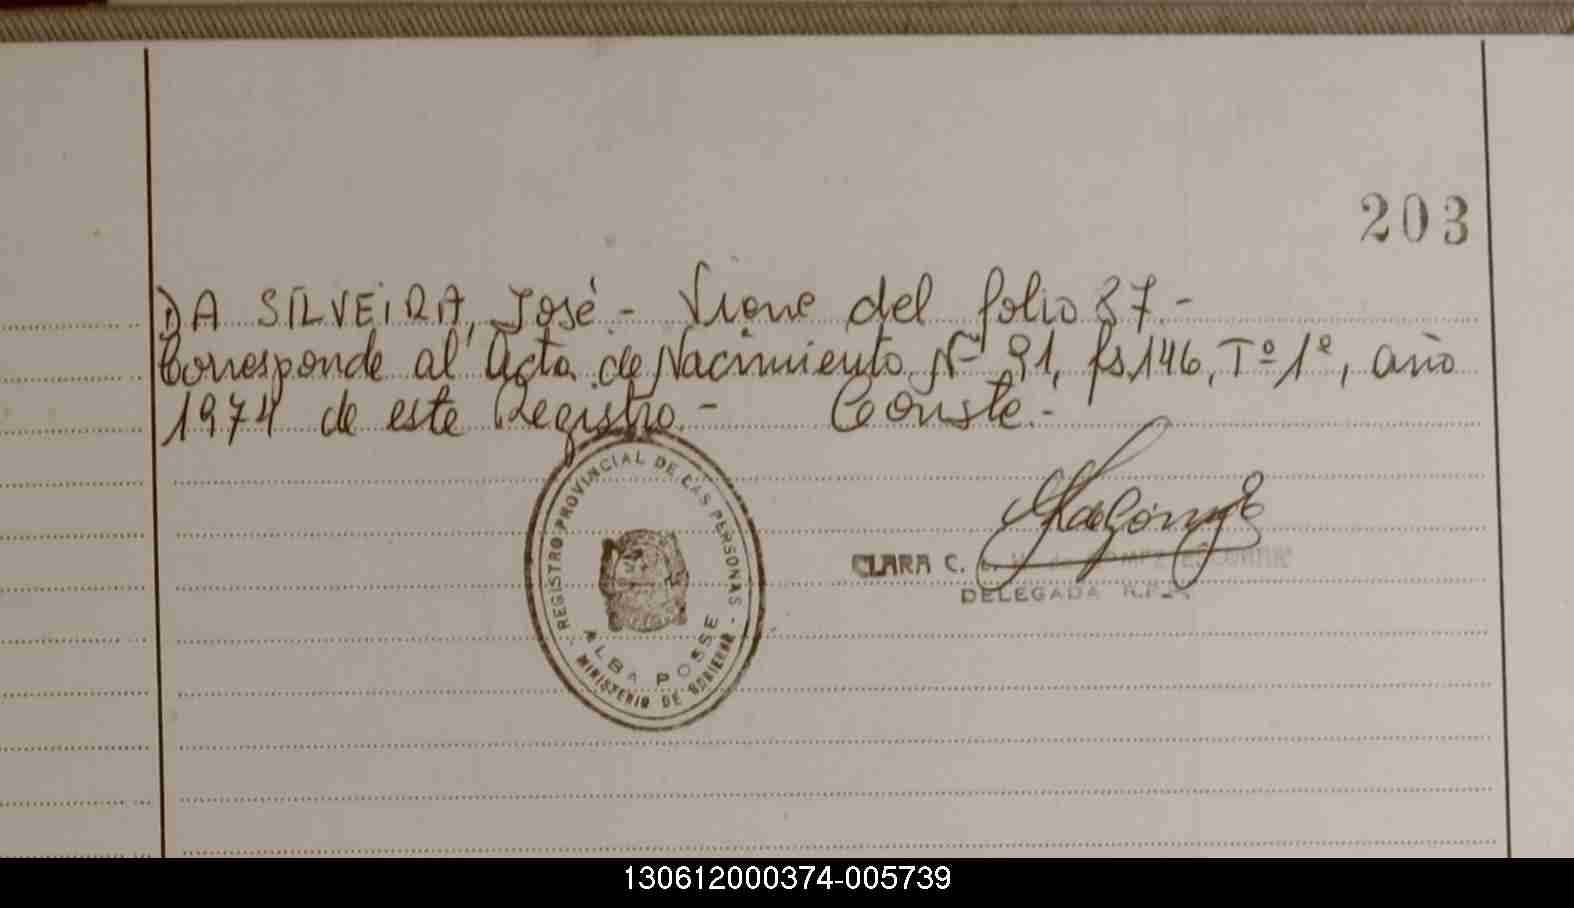 203
DA SILVEIRA, José.- Viene del folio 87.-
Corresponde al Acta de Nacimiento Nº 91, fs 146, Tº 1º, año
1974 de este Registro.- Conste.-
REGISTRO PROVINCIAL DE LAS PERSONAS
ALBA POSSE
- MINISTERIO DE GOBIERNO -
CLARA C.
DELEGADA R.P.
130612000374-005739